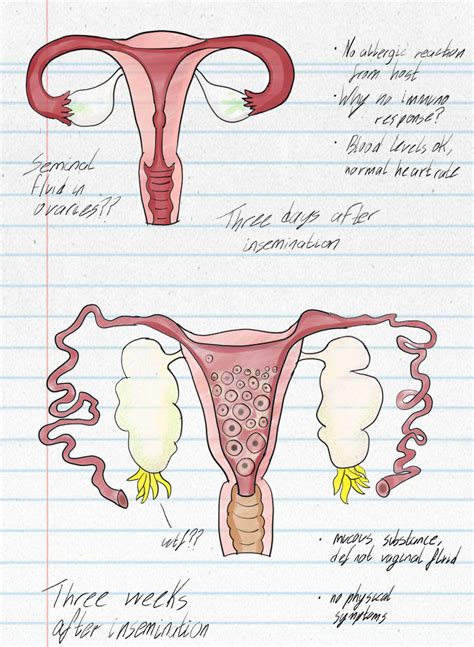 · No allergic reaction
from host
· Why no immuno
response?
· Blood levels OK,
normal heart rate
Seminal
fluid in
ovaries??
Three days after
insemination
wtf??
· mucous substance,
def not vaginal fluid
· no physical
symptoms
Three weeks
after insemination